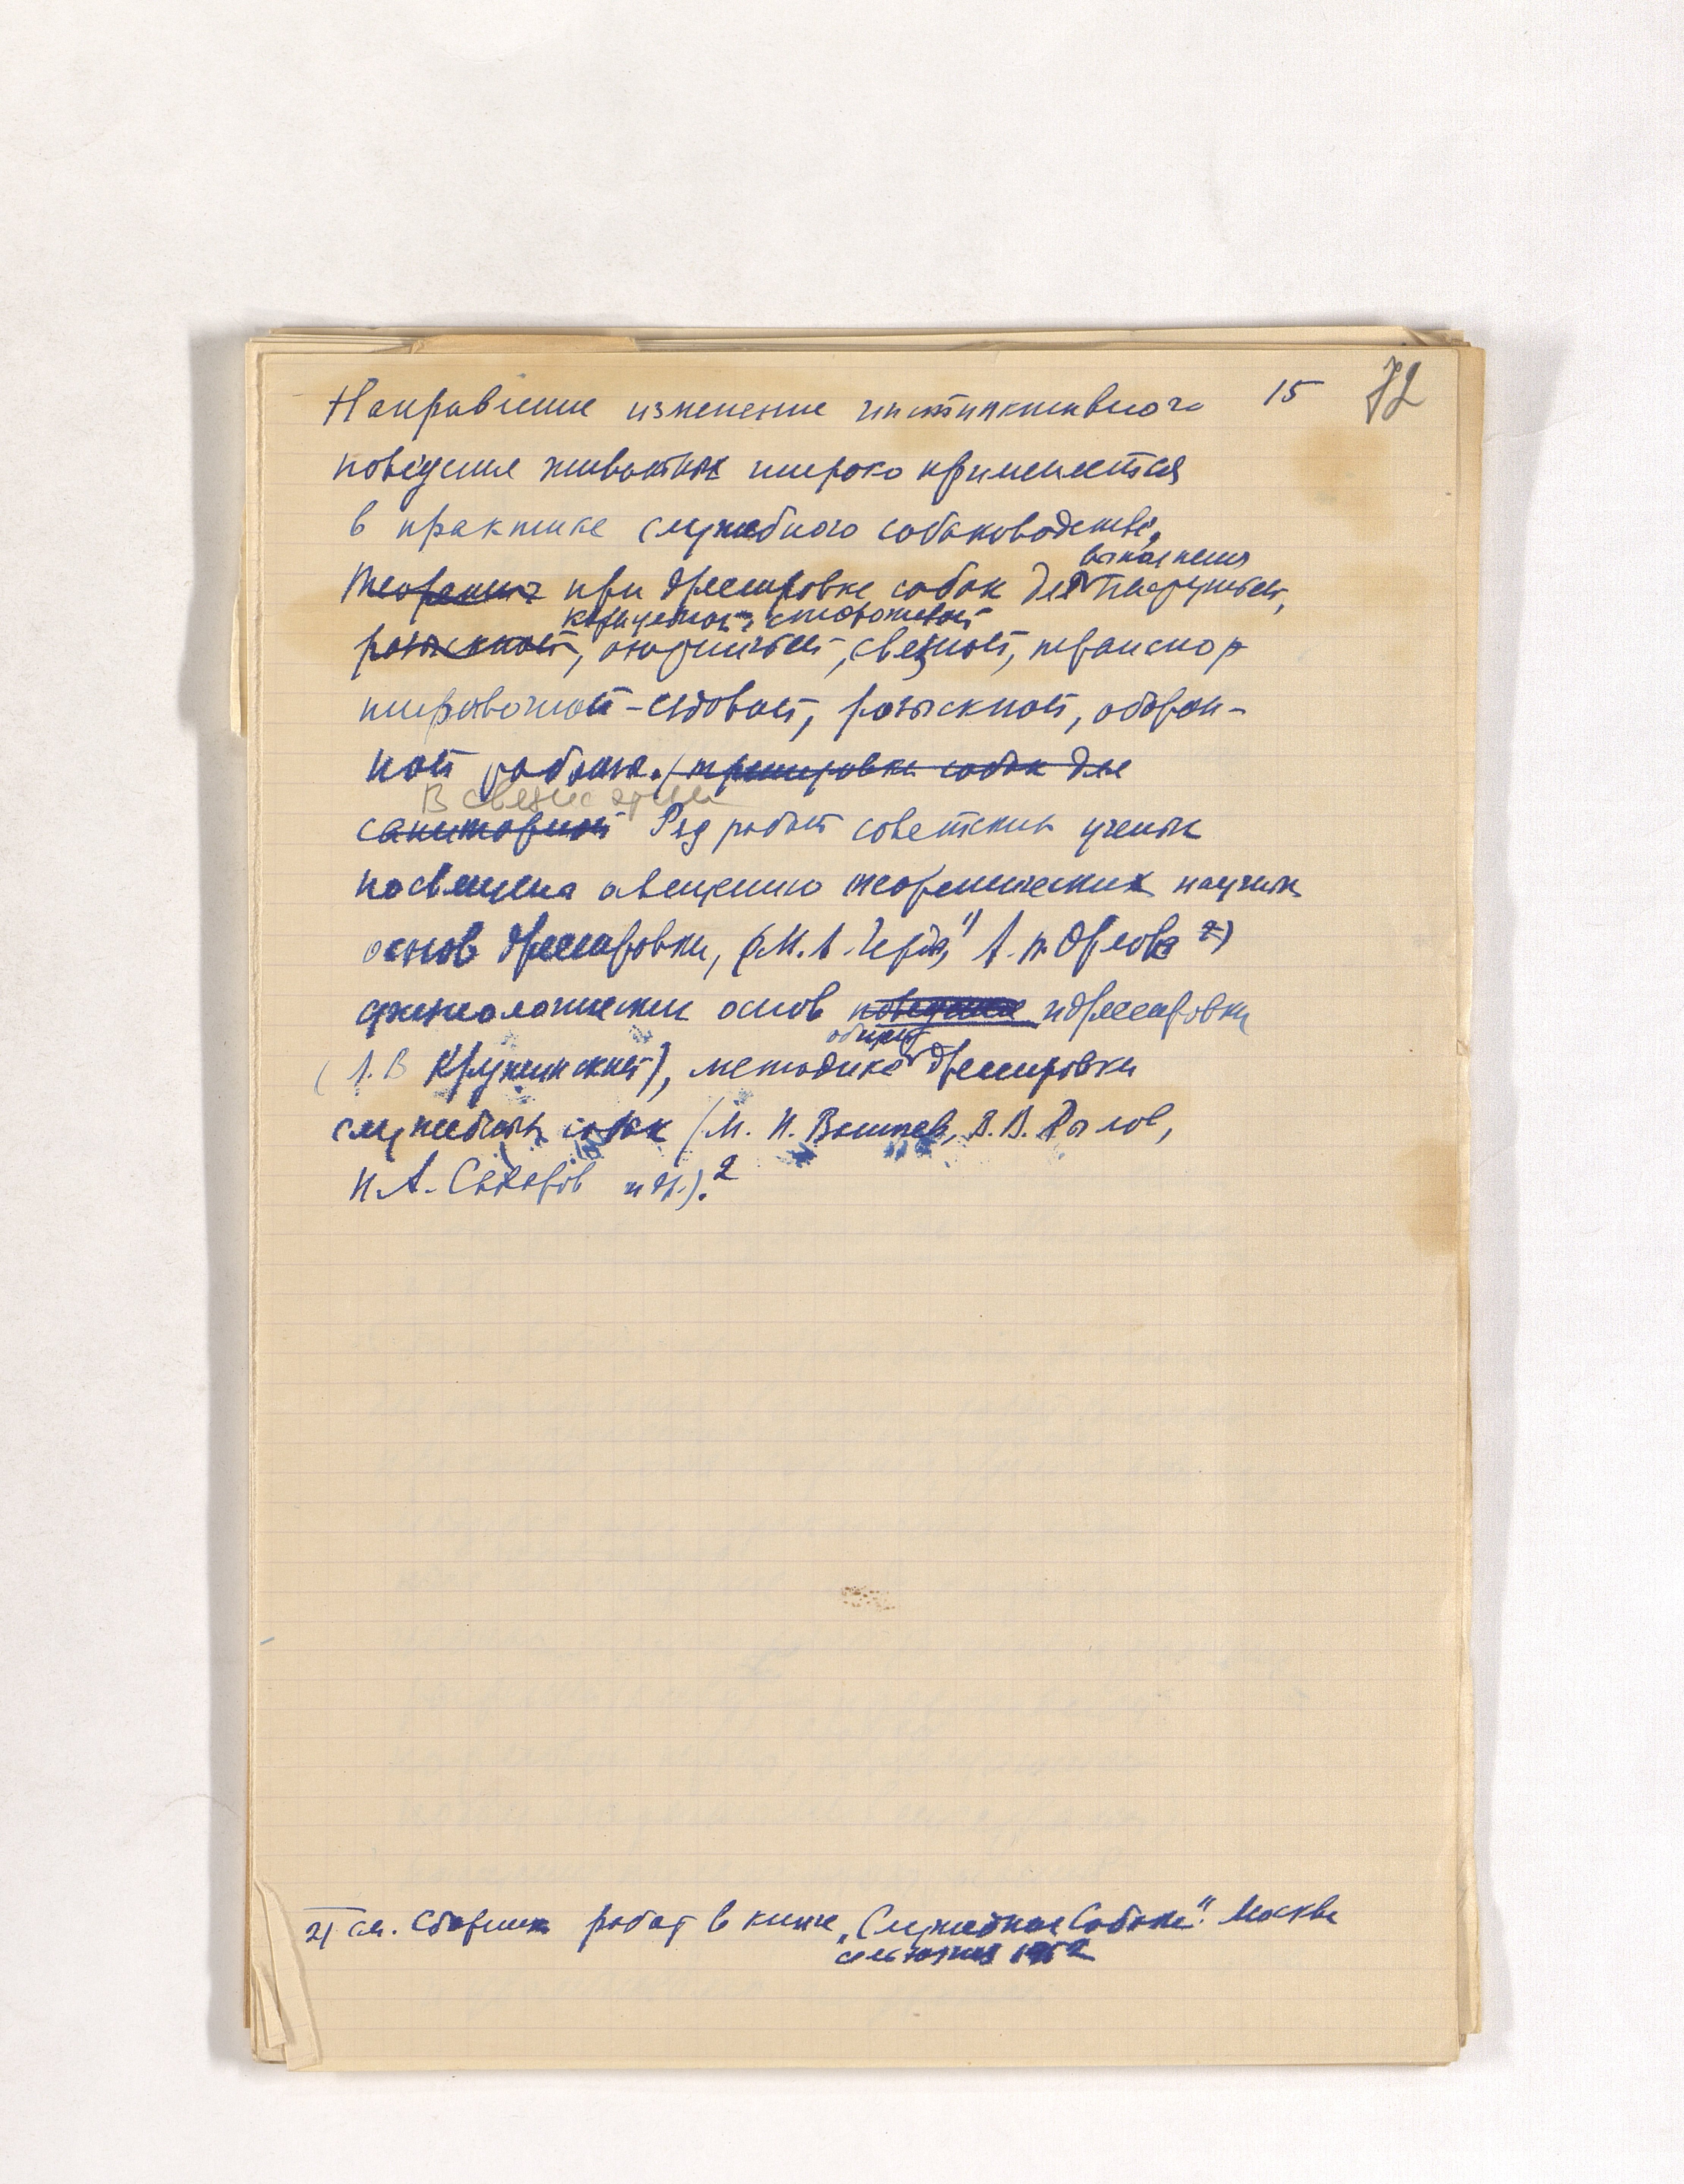 15 72
Направление изменение инстинктивного
поведения животных широко применяется
в практике служебного собаководства,
выполнения
при дрессировке собак для пастушьей,
караульной, сторожевой
розыскной, охотничьей, связной, транспор
тировочной-ездовой, розыскной, оборон-
ной работы. (тренировке собак для
В связи с этим
санитарной Ряд работ советских ученых
посвящена освещению теоретических научных
основ дрессировки, (М. А. 1) А. П. Орлова 2)
физиологических основ поведения и дрессировки
общей
(Л. В Крушинский), методике дрессировки
служебных собак (М. Н. В. В. Рылов,
Н. А. Сахаров и др.).2
2) см. Сборник работ в книге „Служебная Собака". Москва
сельхозгиз 1952